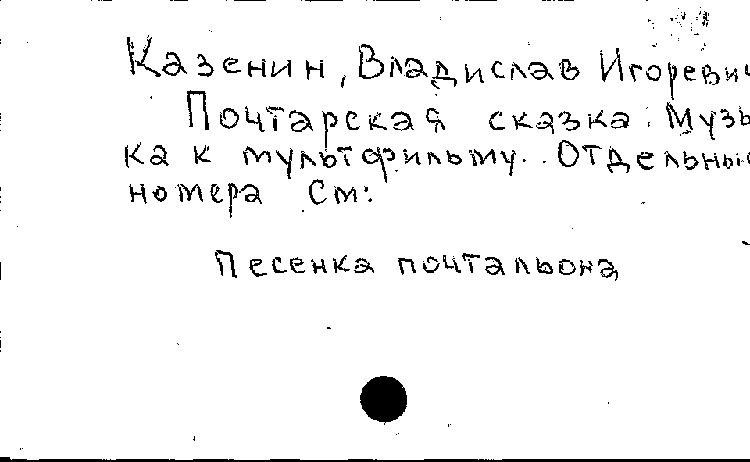 Казенин, Владислав Игоревич
Почтарская сказка. Музы
ка к мультфильму. Отдельные
номера См:
Песенка почтальона